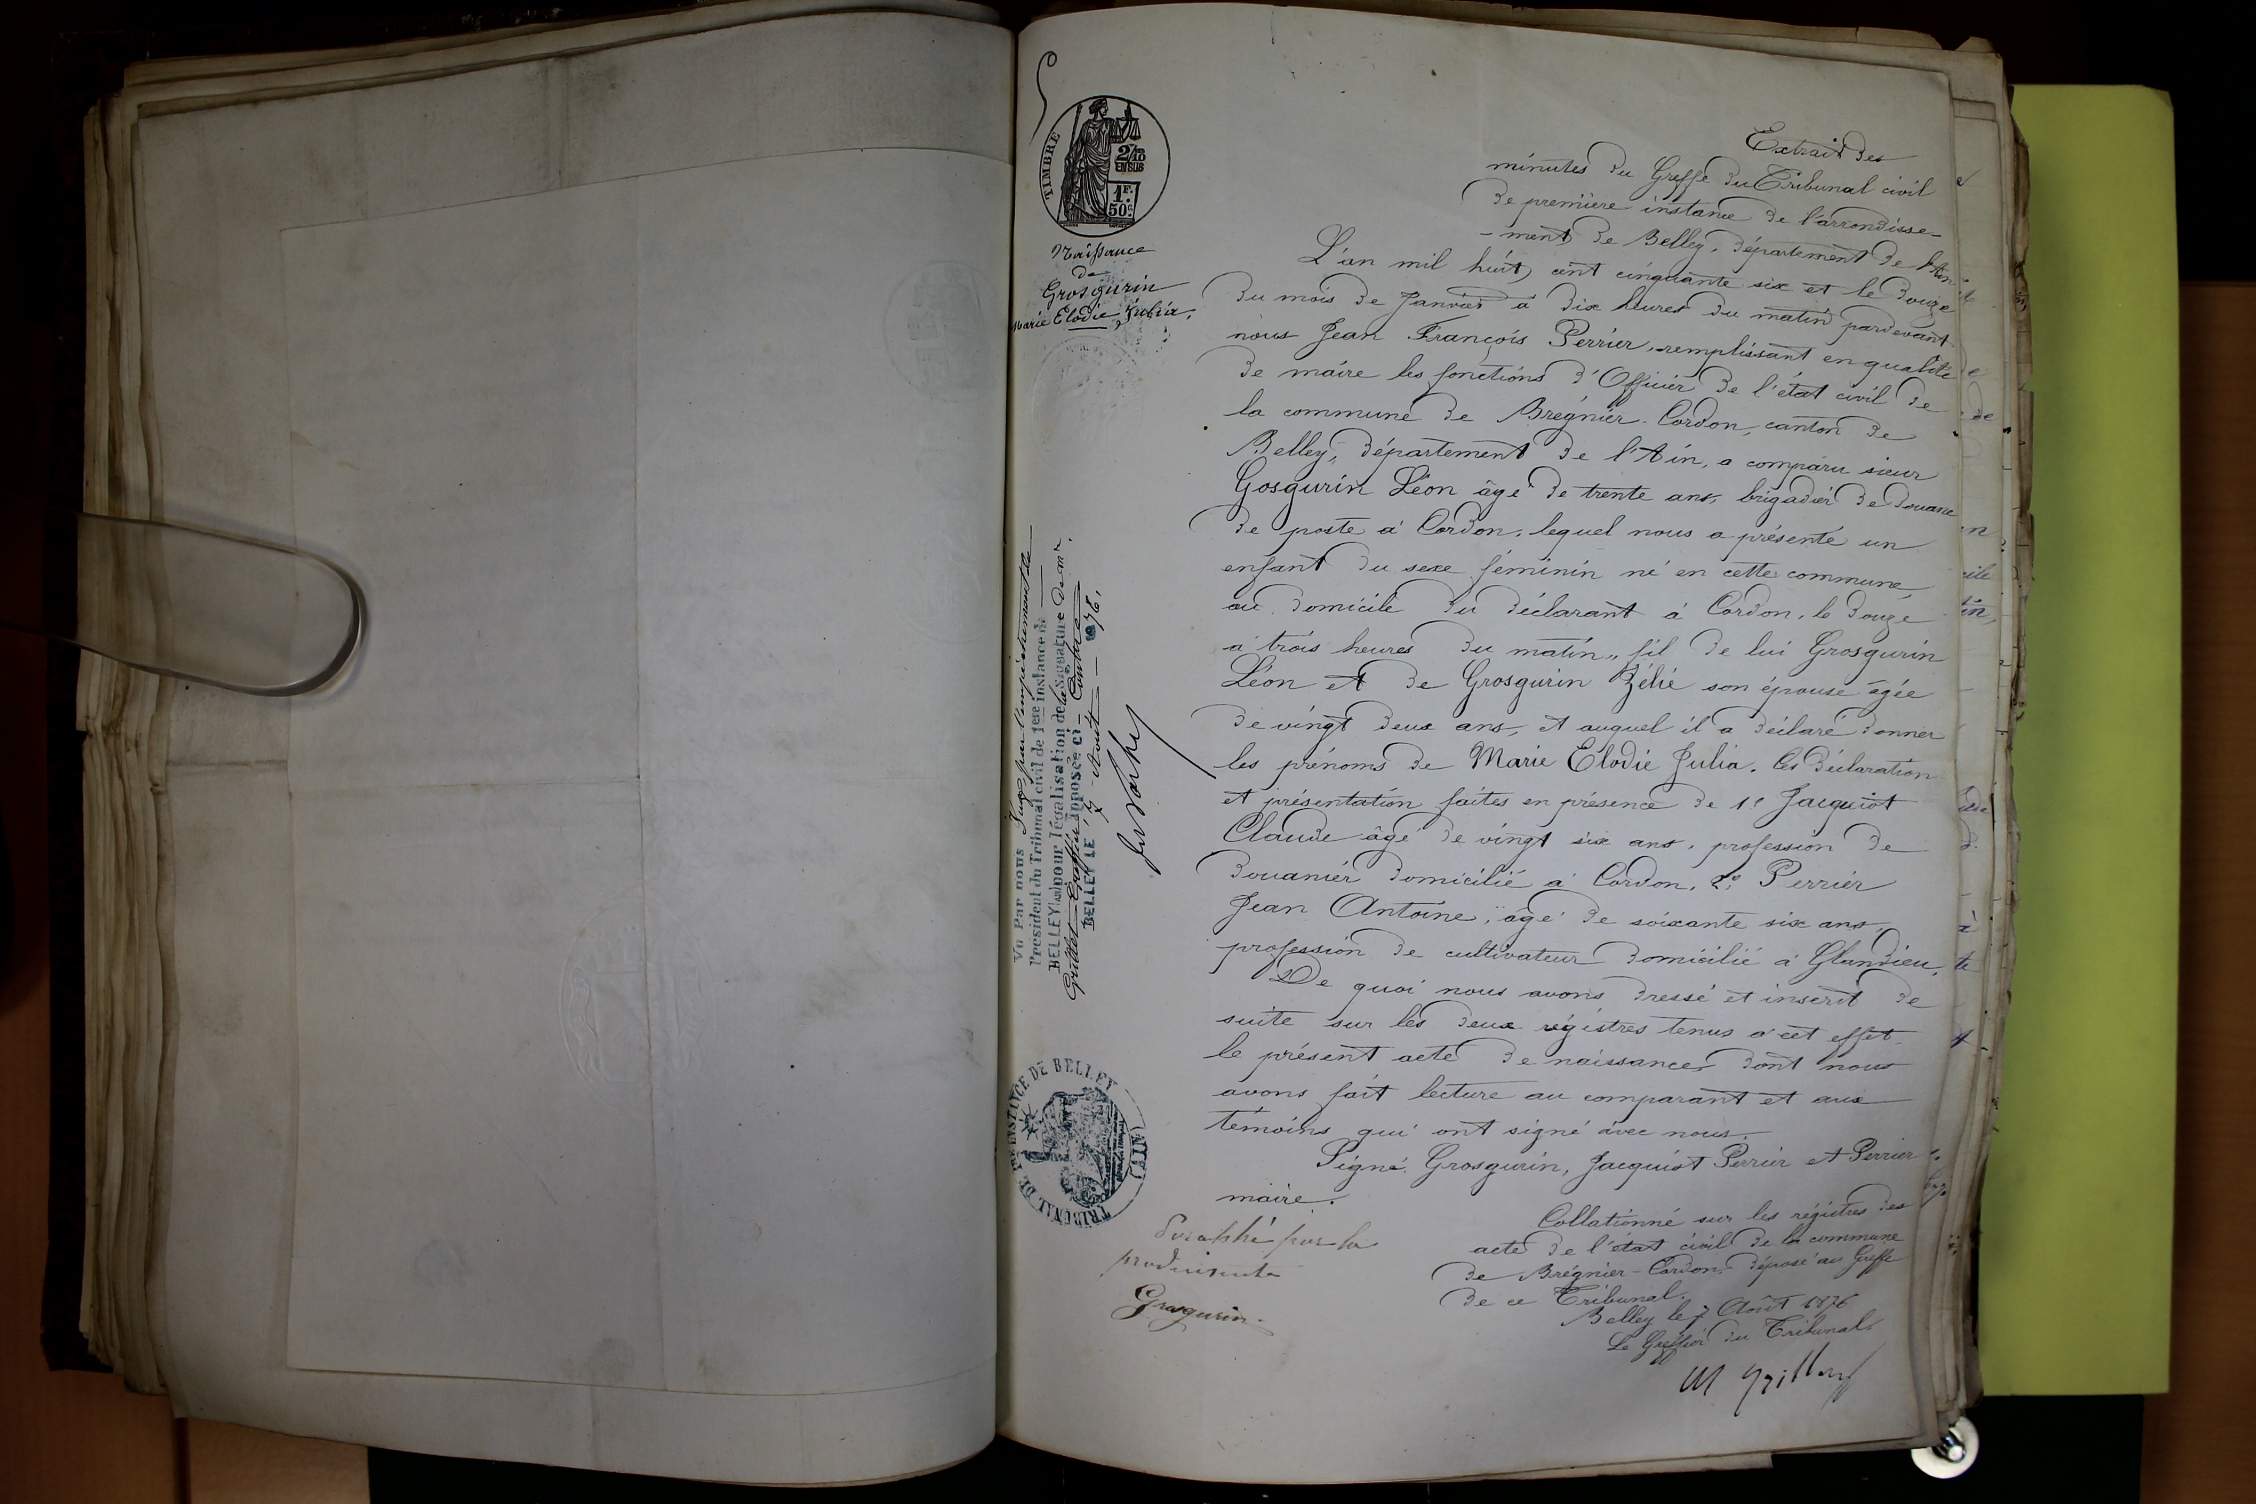 TIMBRE
2/10
EN SUS
1F.
50c.
Naissance
de
Grosgurin
Marie Elodie Julia.
Extrait des
minutes du Greffe du Tribunal civil
de première instance de l'arrondisse-
-ment de Belley, département de l'Ain
L'an mil huit cent cinquante six et le douze
du mois de Janvier à dix heures du matin pardevant
nous Jean François Perrier, remplissant en qualité
de maire les fonctions d'Officier de l'état civil de
la commune de Brégnier-Cordon, canton de
Belley, département de l'Ain, a comparu sieur
Gosgurin Léon âgé de trente ans, brigadier de Douane
de poste à Cordon, lequel nous a présenté un
enfant du sexe féminin né en cette commune
au domicile du déclarant à Cordon, le douze
à trois heures du matin, fil de lui Grosgurin
Léon et de Grosgurin Zélie son épouse âgée
de vingt deux ans, et auquel il a déclaré donner
les prénoms de Marie Elodie Julia. les déclaration
et présentation faites en présence de 1e Jacquiot
Claude âgé de vingt six ans, profession de
Douanier domicilié à Cordon, 2e Perrier
Jean Antoine, âgé de soixante six ans,
profession de cultivateur domicilié à Glandieu,
De quoi nous avons dressé et inscrit de
suite sur les deux régistres tenus à cet effet
le présent acte de naissance, dont nous
avons fait lecture au comparant et aux
témoins qui ont signé avec nous.
Signé Grosgurin, Jacquiot Perrier et Perrier
maire.
Collationné sur les régistres des
acte de l'état civil de la commune
de Brégnier-Cordon, déposé au Greffe
de ce Tribunal.
Belley le 7 Août 1876
Le Greffier du Tribunal
Vu Par nous Juge pour l'empêchement de
Président du Tribunal civil de 1ere instance de
BELLEY (Ain) pour légalisation de la Signature de Mr
Grillet Greffier apposée ci-contre
BELLEY LE 7 Août 1876.
TRIBUNAL DE 1RE INSTANCE DE BELLEY (AIN)
Paraphé par la
produisante
Grosgurin